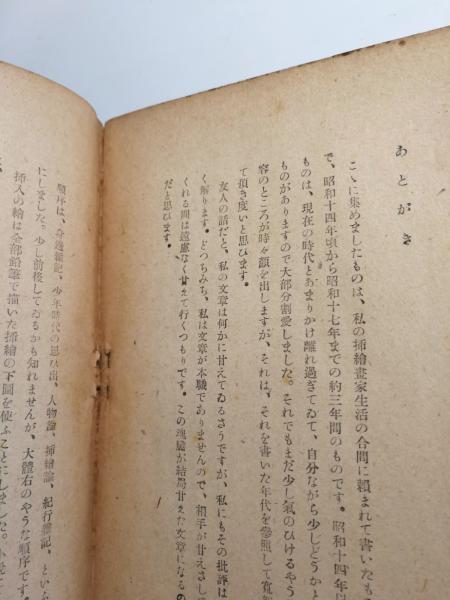 あとがき
こゝに集めましたものは、私の挿繪畫家生活の合間に賴まれて書いたも
で、昭和十四年頃から昭和十七年までの約三年間のものです。昭和十四年以
ものは、現在の時代とあまりかけ離れ過ぎてゐて、自分ながら少しどうかと
ものがありますので大部分割愛しました。それでもまだ少し氣のひけるやう
容のところが時々顏を出しますが、それは、それを書いた年代を參照して寬
て頂き度いと思ひます。
友人の話だと、私の文章は何かに甘えてゐるさうですが、私にもその批評は
く解ります。どつちみち、私は文章が本職でありませんので、相手が甘えさし
くれる間は遠慮なく甘えて行くつもりです。この魂膽が結局甘えた文章になるの
だと思ひます。
順序は、身邊雜記、少年時代の思ひ出、人物論、挿繪論、紀行雜記、といふ
にしました。少し前後してゐるかも知れませんが、大體右のやうな順序です。
挿入の繪は全部鉛筆で描いた挿繪の下圖を使ふことにしました。